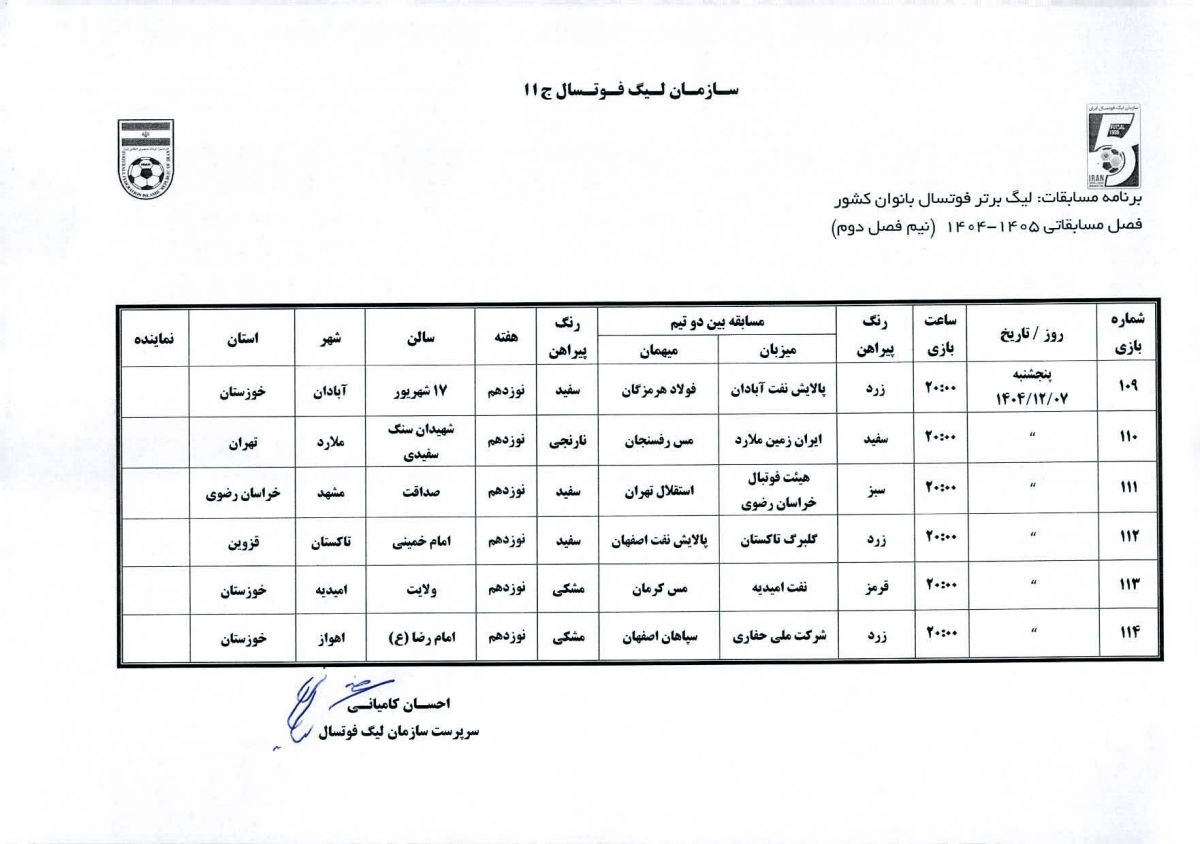 سازمان لیگ فوتسال ج ۱۱
سازمان لیگ فوتسال ایران
FUTSAL
IRAN
IRAN
برنامه مسابقات: لیگ برتر فوتسال بانوان کشور
فصل مسابقاتی ۱۴۰۵-۱۴۰۴ (نیم فصل دوم)
شماره بازی | روز / تاریخ | ساعت بازی | رنگ پیراهن | مسابقه بین دو تیم | رنگ پیراهن | هفته | سالن | شهر | استان | نماینده
میزبان | میهمان
۱۰۹ | پنجشنبه ۱۴۰۴/۱۲/۰۷ | ۲۰:۰۰ | زرد | پالایش نفت آبادان | فولاد هرمزگان | سفید | نوزدهم | ۱۷ شهریور | آبادان | خوزستان
۱۱۰ | " | ۲۰:۰۰ | سفید | ایران زمین ملارد | مس رفسنجان | نارنجی | نوزدهم | شهیدان سنگ سفیدی | ملارد | تهران
۱۱۱ | " | ۲۰:۰۰ | سبز | هیئت فوتبال خراسان رضوی | استقلال تهران | سفید | نوزدهم | صداقت | مشهد | خراسان رضوی
۱۱۲ | " | ۲۰:۰۰ | زرد | گلبرگ تاکستان | پالایش نفت اصفهان | سفید | نوزدهم | امام خمینی | تاکستان | قزوین
۱۱۳ | " | ۲۰:۰۰ | قرمز | نفت امیدیه | مس کرمان | مشکی | نوزدهم | ولایت | امیدیه | خوزستان
۱۱۴ | " | ۲۰:۰۰ | زرد | شرکت ملی حفاری | سپاهان اصفهان | مشکی | نوزدهم | امام رضا (ع) | اهواز | خوزستان
احسان کامیانی
سرپرست سازمان لیگ فوتسال